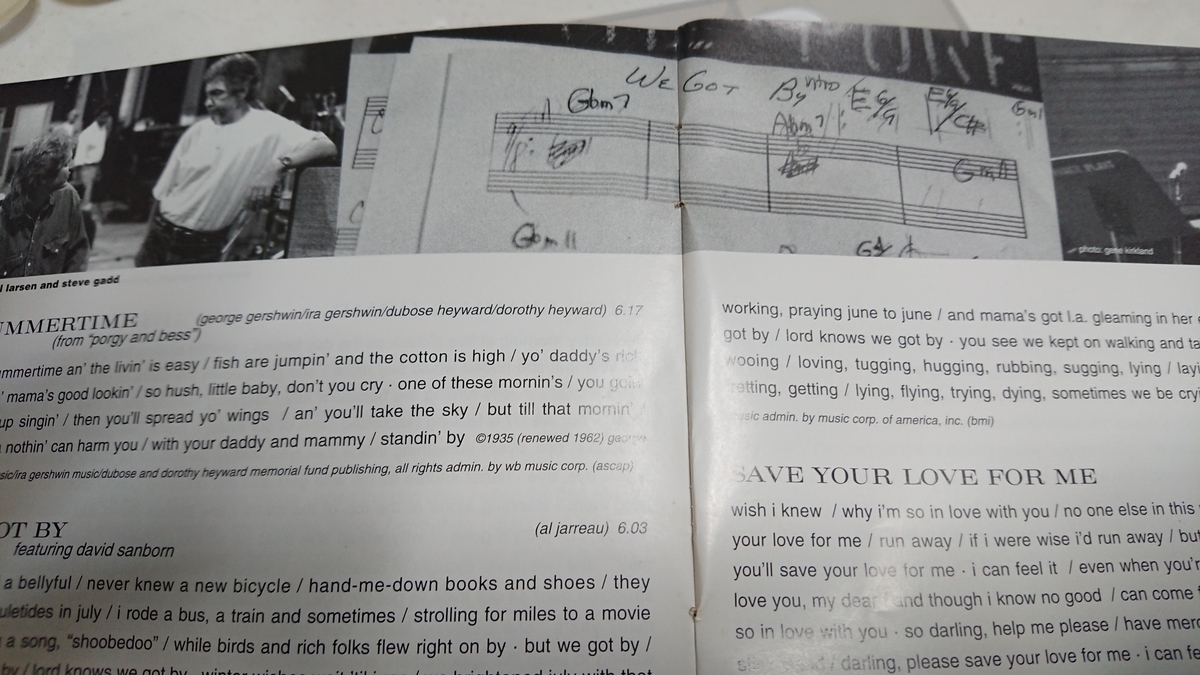 WE GOT
By
intro
Gbm7
Abm7
Gbm11
photo: gene kirkland
larsen and steve gadd
SUMMERTIME (george gershwin/ira gershwin/dubose heyward/dorothy heyward) 6.17
(from "porgy and bess")
mmertime an' the livin' is easy / fish are jumpin' and the cotton is high / yo' daddy's rich
mama's good lookin' / so hush, little baby, don't you cry · one of these mornin's / you goin'
up singin' / then you'll spread yo' wings / an' you'll take the sky / but till that mornin'
nothin' can harm you / with your daddy and mammy / standin' by ©1935 (renewed 1962)
sic/ira gershwin music/dubose and dorothy heyward memorial fund publishing, all rights admin. by wb music corp. (ascap)
OT BY (al jarreau) 6.03
featuring david sanborn
a bellyful / never knew a new bicycle / hand-me-down books and shoes / they
uletides in july / i rode a bus, a train and sometimes / strolling for miles to a movie
a song, "shoobedoo" / while birds and rich folks flew right on by · but we got by /
by / lord knows we got by
working, praying june to june / and mama's got l.a. gleaming in her
got by / lord knows we got by · you see we kept on walking and ta
wooing / loving, tugging, hugging, rubbing, sugging, lying / layi
getting / lying, flying, trying, dying, sometimes we be cryi
music admin. by music corp. of america, inc. (bmi)
SAVE YOUR LOVE FOR ME
wish i knew / why i'm so in love with you / no one else in this
your love for me / run away / if i were wise i'd run away / but
you'll save your love for me · i can feel it / even when you'r
love you, my dear and though i know no good / can come
so in love with you · so darling, help me please / have merc
/ darling, please save your love for me · i can fe